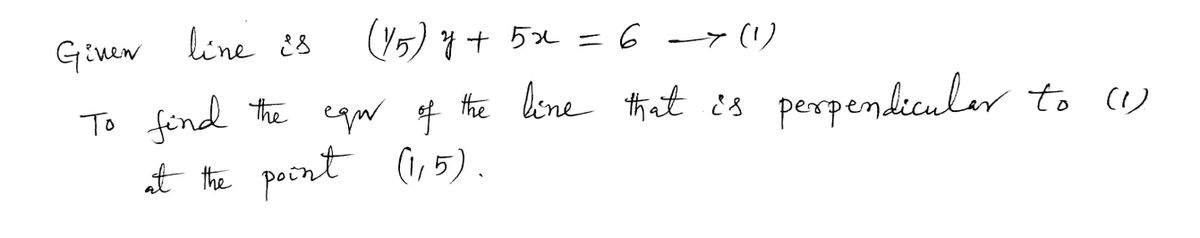 Given line is (1/5) y + 5x = 6 → (1)
To find the eqn of the line that is perpendicular to (1)
at the point (1, 5).